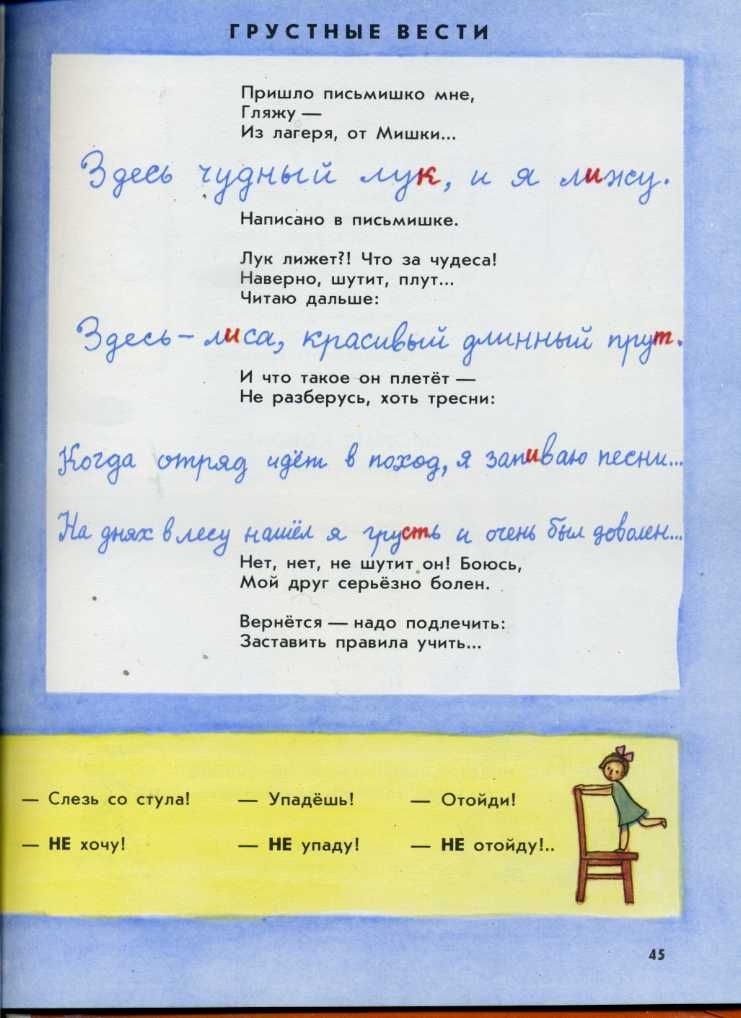 ГРУСТНЫЕ ВЕСТИ
Пришло письмишко мне,
Гляжу —
Из лагеря, от Мишки...
Здесь чудный лук, и я лижу.
Написано в письмишке.
Лук лижет?! Что за чудеса!
Наверно, шутит, плут...
Читаю дальше:
Здесь – лиса, красивый длинный прут.
И что такое он плетёт —
Не разберусь, хоть тресни:
Когда отряд идёт в поход, я запиваю песни...
На днях в лесу нашёл я грусть и очень был доволен...
Нет, нет, не шутит он! Боюсь,
Мой друг серьёзно болен.
Вернётся — надо подлечить:
Заставить правила учить...
— Слезь со стула! — Упадёшь! — Отойди!
— НЕ хочу! — НЕ упаду! — НЕ отойду!..
45